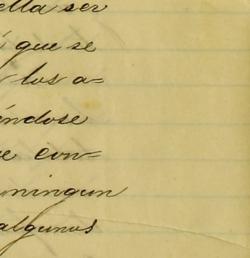 ella ser
que se
los a=
éndose
e con=
ningun
algunos